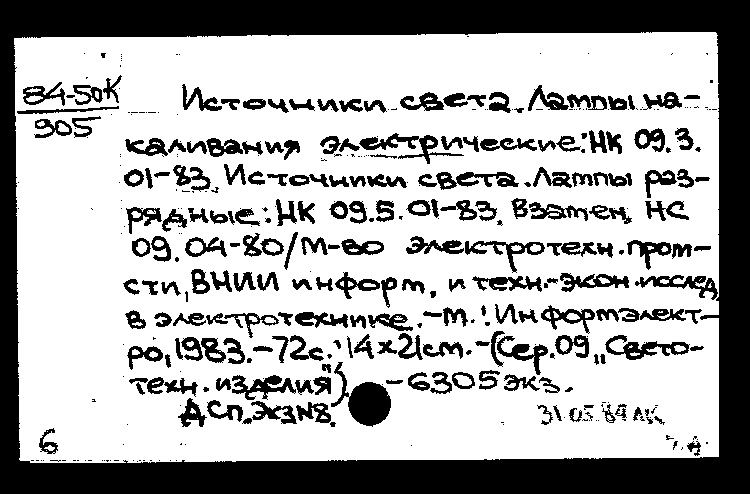 84-50К
905
Источники света. Лампы на-
каливания электрические: НК 09.3.
01-83. Источники света. Лампы раз-
рядные: НК 09.5.01-83. Взамен НС
09.04-80/М-во электротехн. пром-
сти, ВНИИ информ. и техн.-экон. исслед.
в электротехнике. -М.: Информэлект-
ро, 1983. -72с.; 14x21cm. -(Сер.09 „Свето-
техн. изделия"). -6305 экз.
ДСП. Экз N8.
31 05 84 ЛК
6